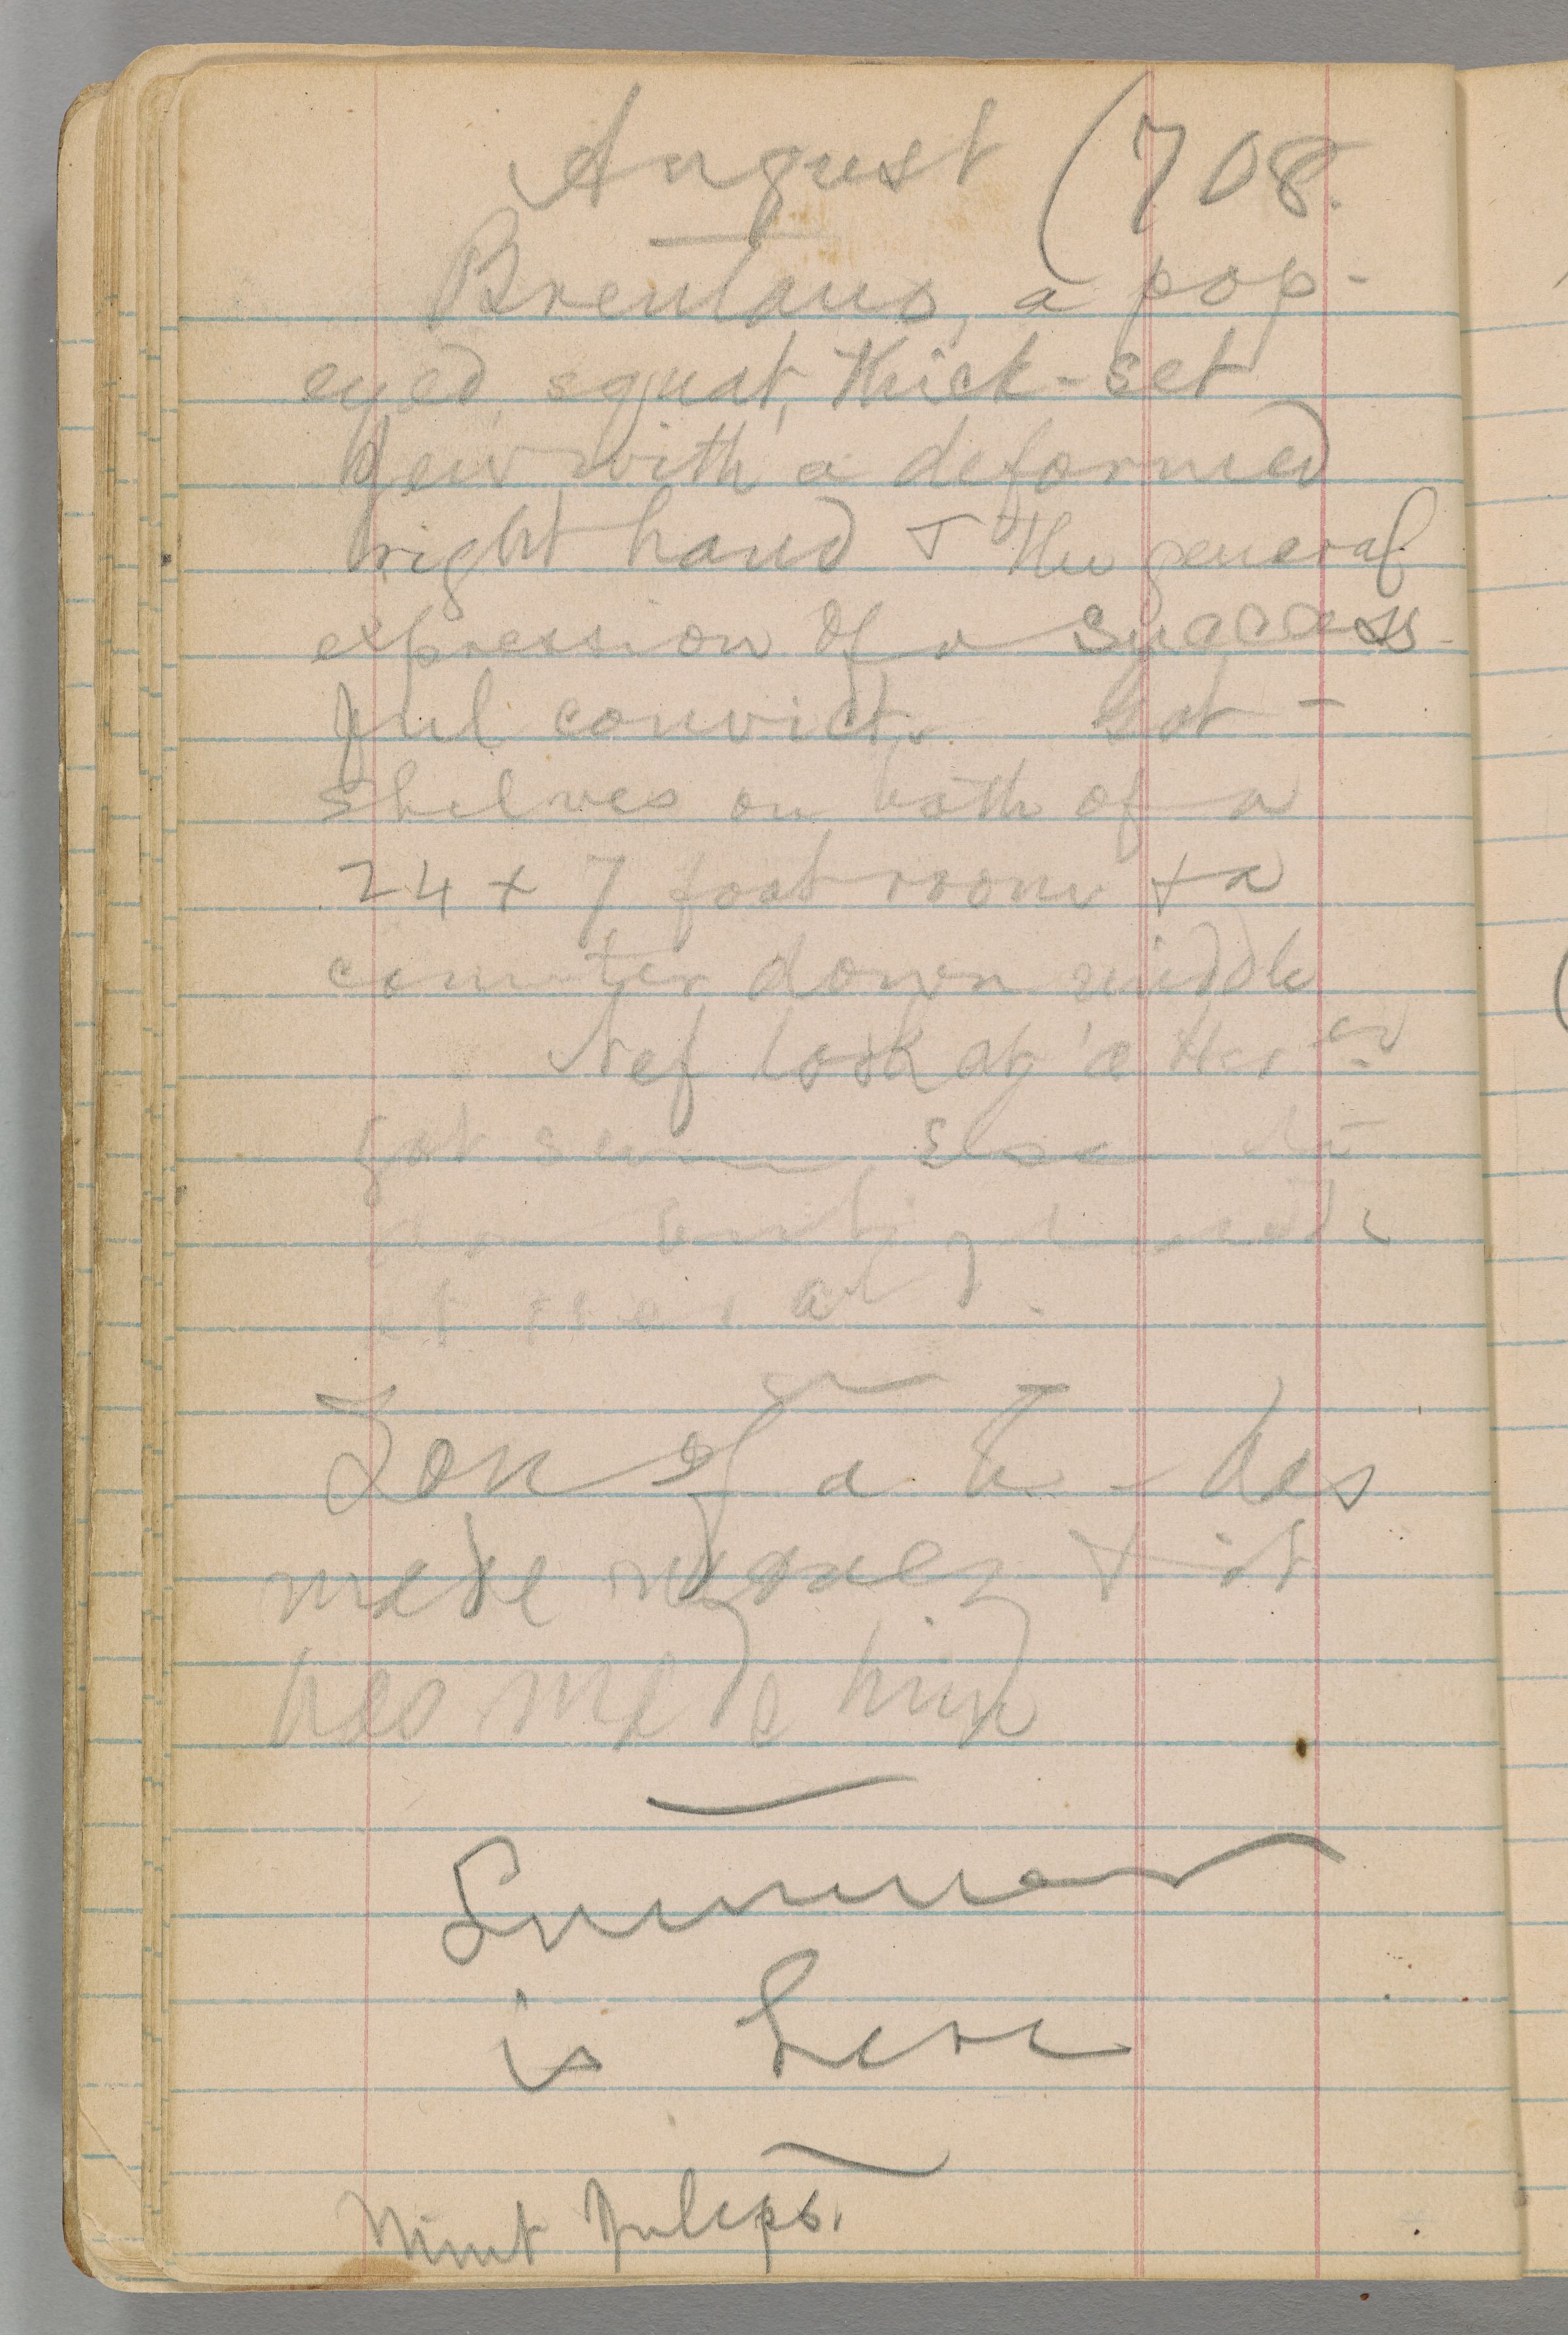 August (708.
Brentano, a pop-
eyed, squat, thick-set
Jew with a deformed
right hand & the general
expression of a success-
ful convict. Got -
shelves on both of a
24 x 7 foot room & a
counter down middle
look at
got else
Son of a has
made money & it
has made him
Summer
is here
Mint Juleps.